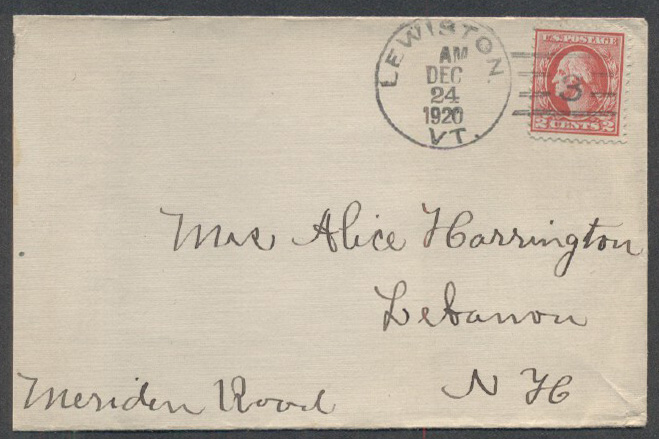 LEWISTON.
AM
DEC
24
1920
VT.
U.S. POSTAGE
3
2 CENTS 2
Mrs Alice Harrington
Lebanon
N H
Meriden Road